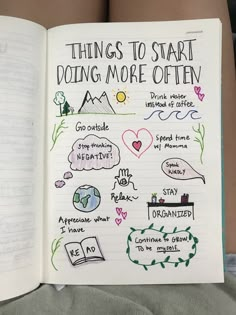 THINGS TO START
DOING MORE OFTEN
Drink water
instead of coffee
Go outside
Stop thinking
NEGATIVE!
Spend time
w/ Momma
Speak
KINDLY
Relax~
STAY
ORGANIZED
Appreciate what
I have
READ
Continue to GROW
To be myself